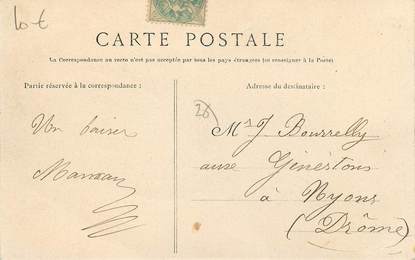 10 €
CARTE POSTALE
La Correspondance au recto n'est pas acceptée par tous les pays étrangers (se renseigner à la Poste)
Partie réservée à la correspondance :
Adresse du destinataire :
26
Un baiser
Maman
Mr J Bourrelly
aux Génestons
à Nyons
(Drôme)